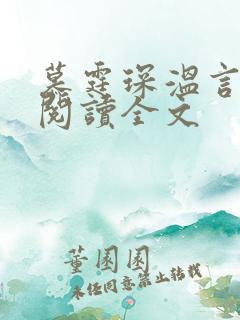 墓霆琛溫言
閱讀全文
董園園
未经同意禁止转载